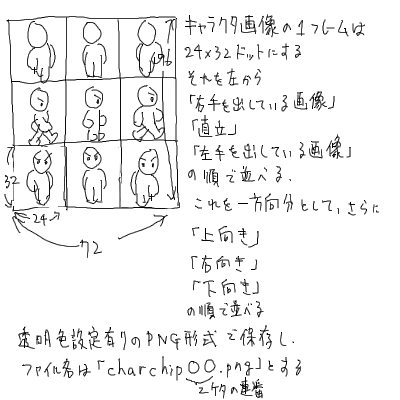 キャラクタ画像の1フレームは
24×32ドットにする
それを左から
「右手を出している画像」
「直立」
「左手を出している画像」
の順で並べる.
これを一方向分として,さらに
「上向き」
「右向き」
「下向き」
の順で並べる
96
32
24
72
透明色設定有りのPNG形式で保存し.
ファイル名は「charchip○○.png」とする
2ケタの連番